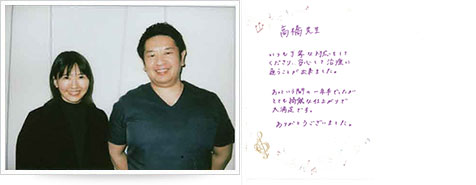 高橋先生
いつも丁寧な対応をして
くださり、安心して治療に
通うことが出来ました。
あっという間の一年半でしたが
とても綺麗な仕上がりで
大満足です。
ありがとうございました。